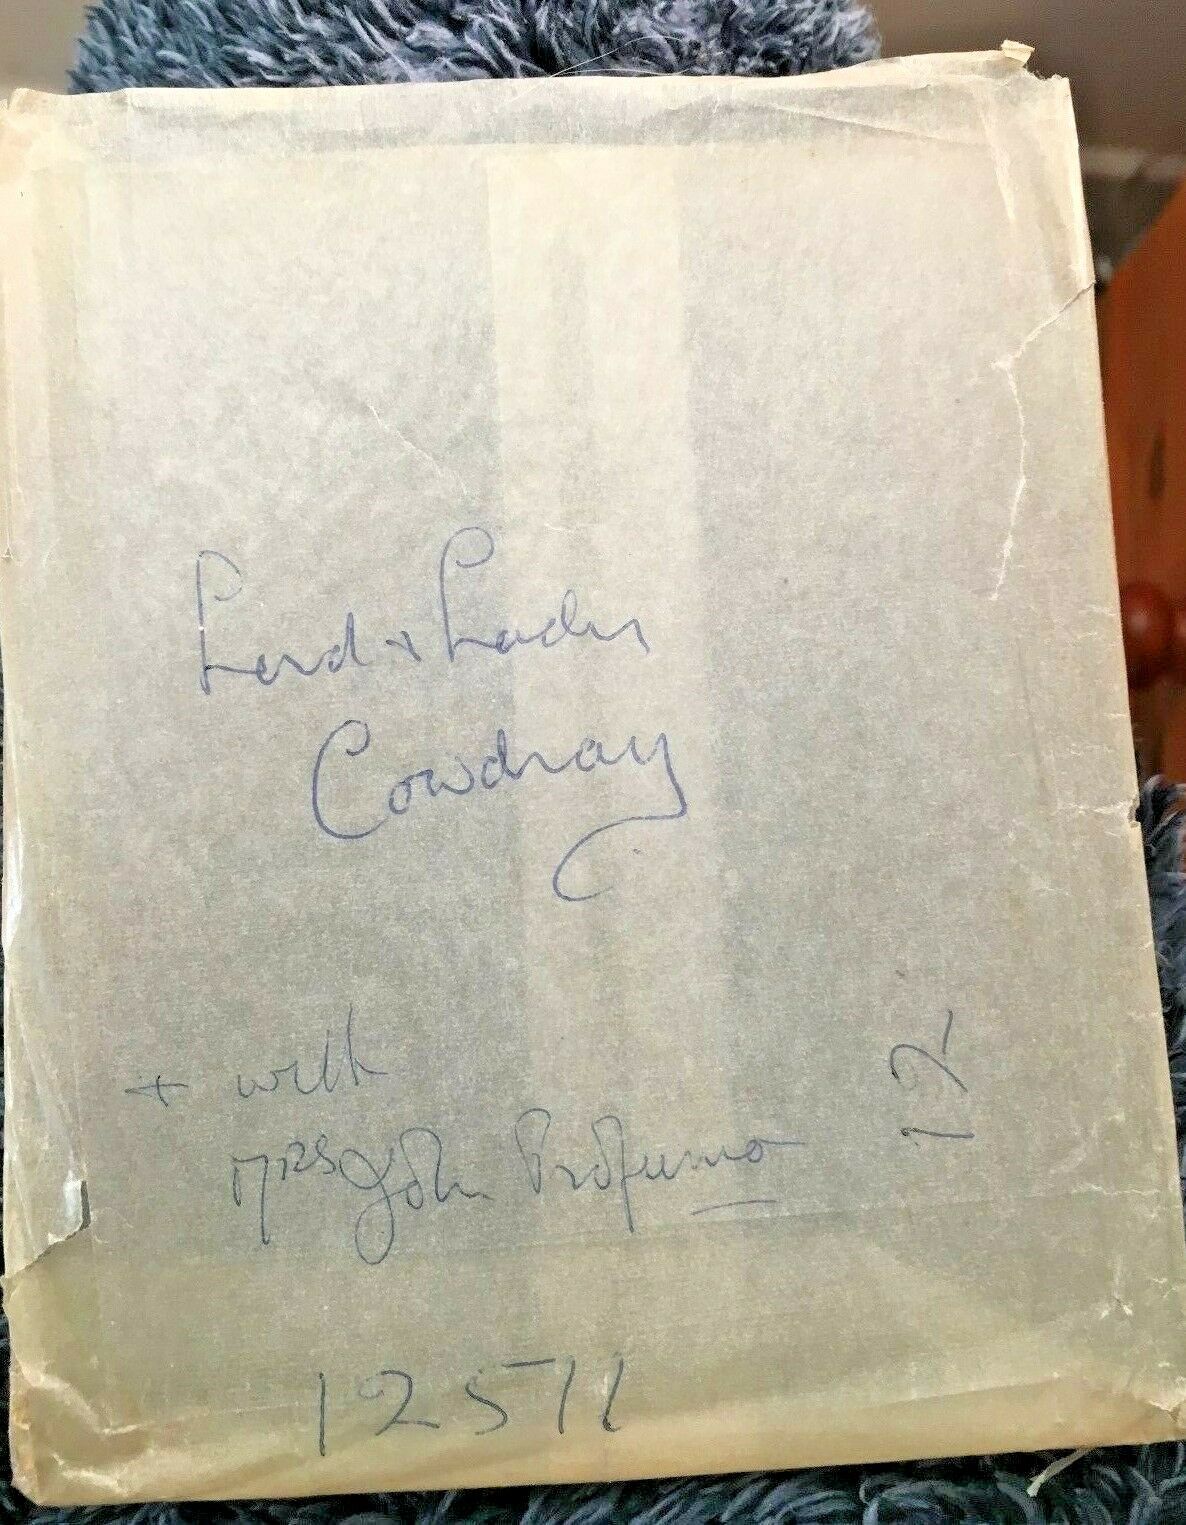 Lord + Lady
Cowdray
+ with
Mrs John Profumo
12511